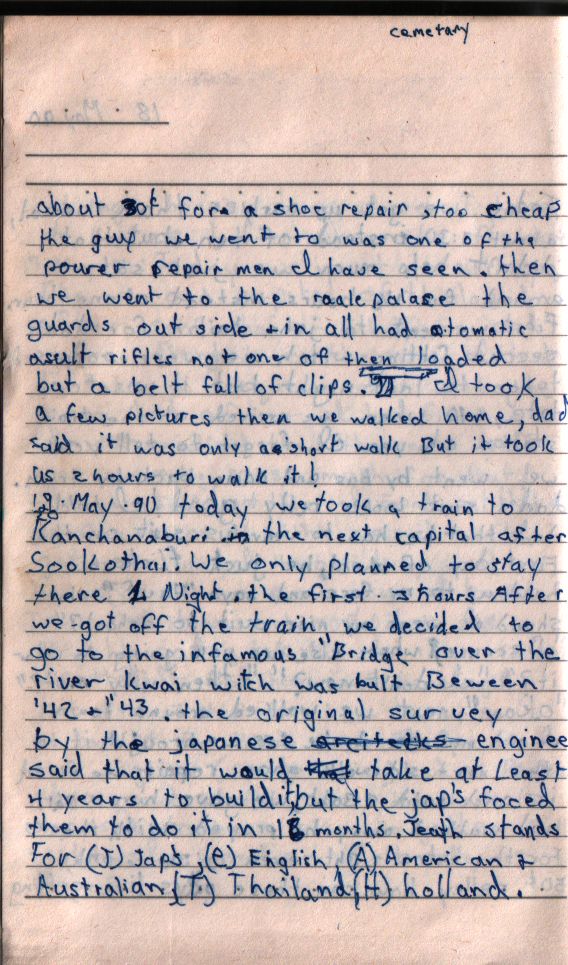 cemetary
about 30t for a shoe repair, too cheap
the guy we went to was one of the
pourer repair men I have seen. then
we went to the raale palase the
guards out side + in all had atomatic
asult rifles not one of then loaded
but a belt full of clips. I took
a few pictures then we walked home, dad
said it was only a short walk But it took
us 2 hours to walk it!
May. 90 today we took a train to
Kanchanaburi the next capital after
Sookothai. We only planned to stay
there 1 Night. the first 3 hours After
we got off the train we decided to
go to the infamous "Bridge over the
river kwai witch was bult Beween
'42 + "43. the original survey
by the japanese arcitecks enginee
said that it would that take at Least
4 years to build it, but the jap's foced
them to do it in 18 months. Jeath stands
For (J) Jap's, (e) English, (A) American +
Australian, (T) Thailand, (H) holland.